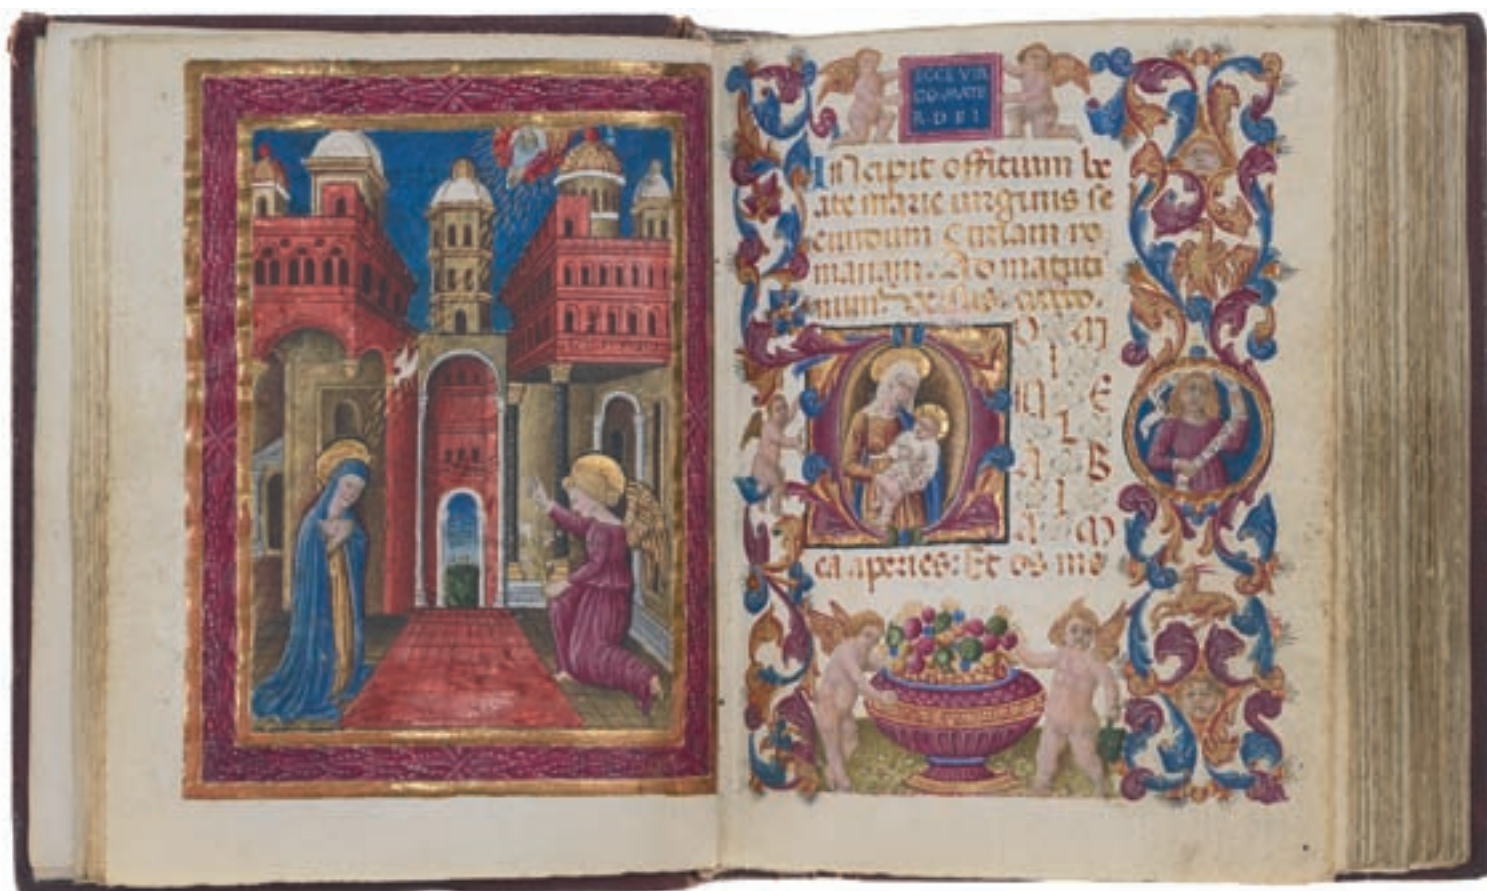 ECCE VIR
GO·MATE
R·D E I
INcipit offitium be
ate marie virginis se
cundum Curiam ro
manam. Ad matuti
num
D
O M
I
N E
L
A B
I
A M
ea aperies: Et os me